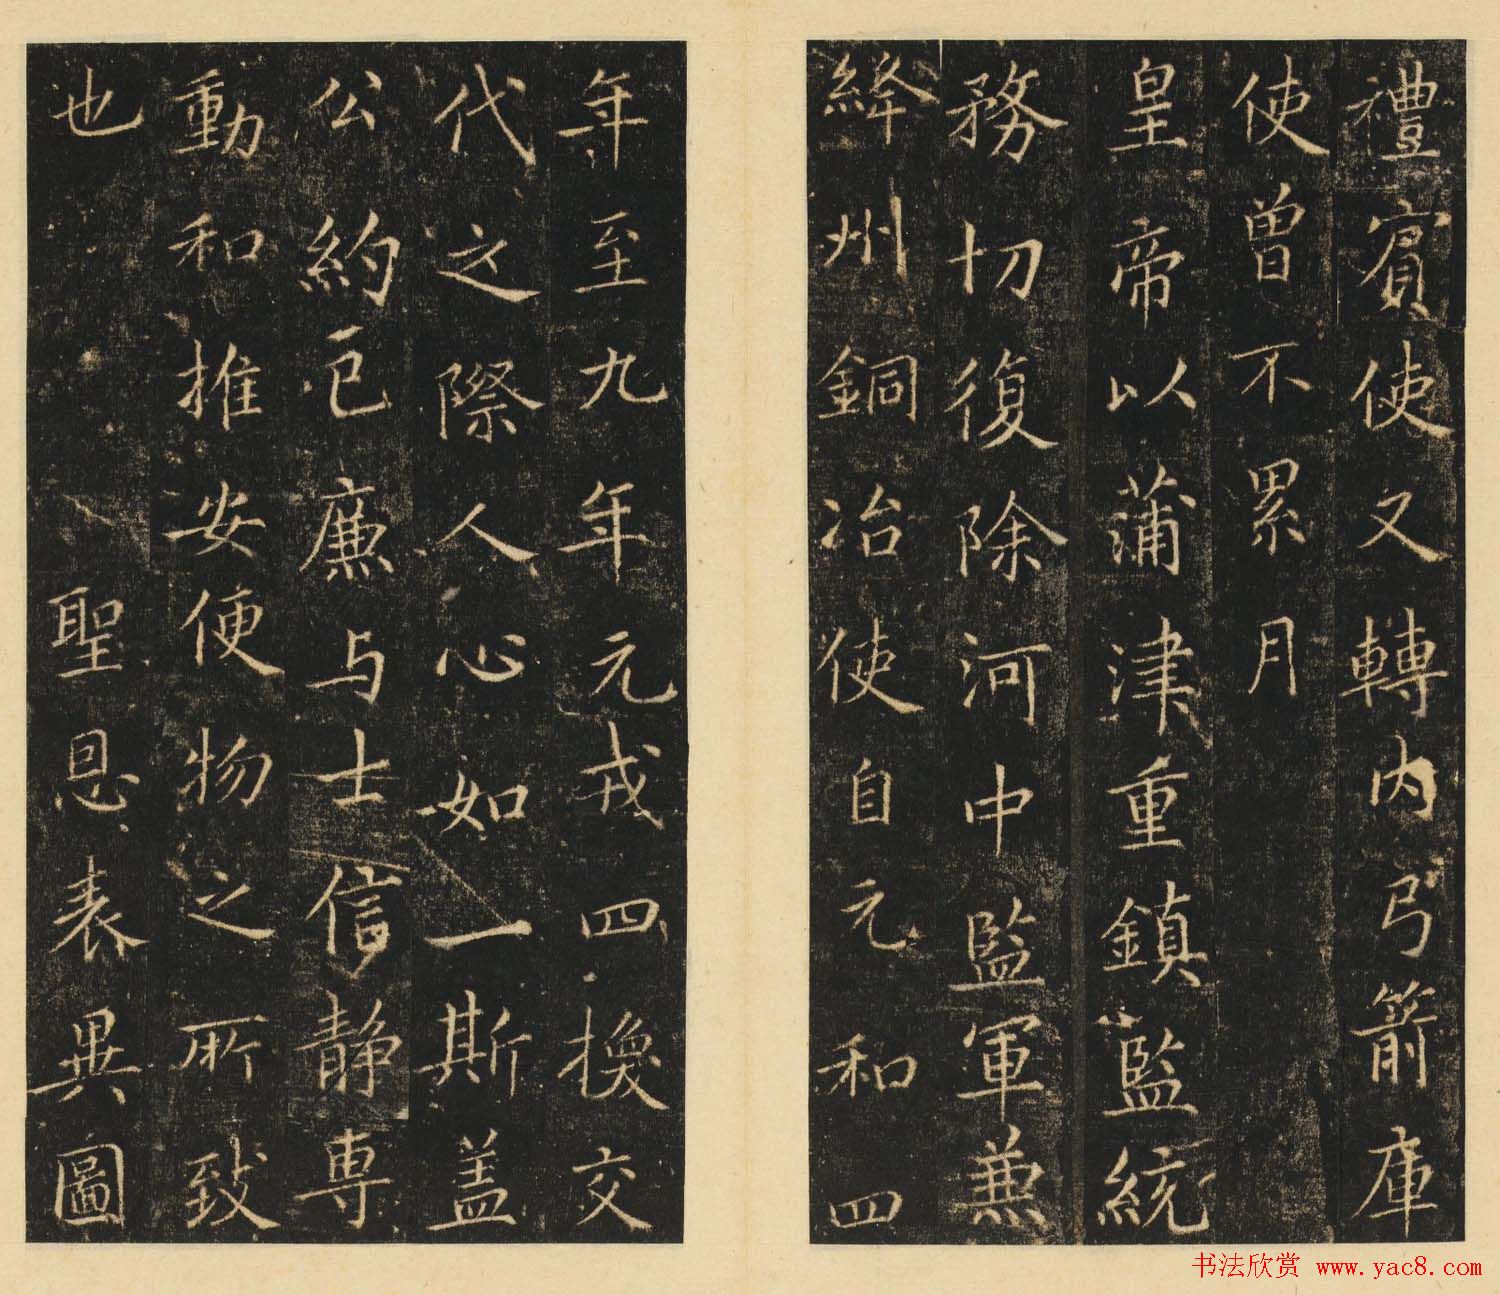 禮賓使又轉内弓箭庫
使曾不累月
皇帝以蒲津重鎮監統
務切復除河中監軍兼
絳州銅冶使自元和四
年至九年元戎四換交
代之際人心如一斯盖
公約已廉与士信静専
動和推安便物之所致
也　　聖恩表異圖
书法欣赏 www.yac8.com